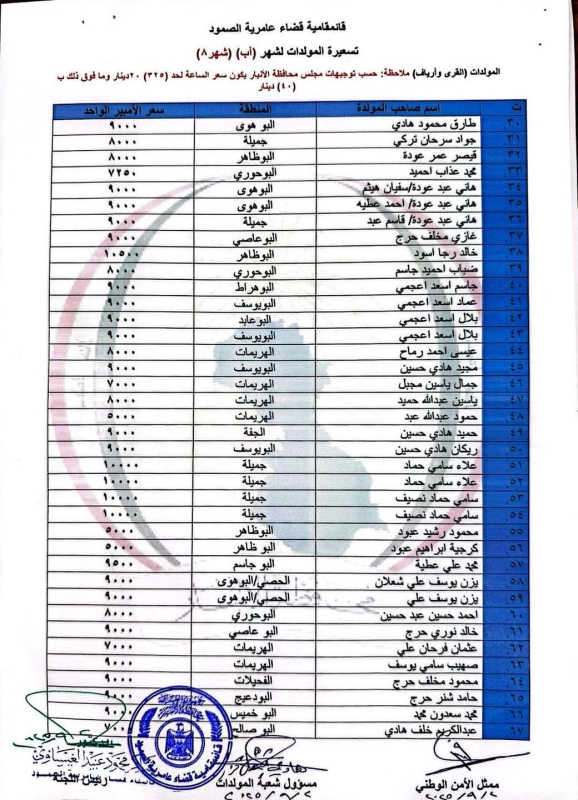 قائمقامية قضاء عامرية الصمود
تسعيرة المولدات لشهر (آب) (شهر٨)
المولدات (القرى وأرياف) ملاحظة: حسب توجيهات مجلس محافظة الأنبار يكون سعر الساعة لحد (٣٢٥) ٢٠دينار وما فوق ذلك ب
(٤٠) دينار
ت اسم صاحب المولدة المنطقة سعر الأمبير الواحد
٣٠ طارق محمود هادي البو هوى ٩٠٠٠
٣١ جواد سرحان تركي جميلة ٨٠٠٠
٣٢ قيصر عمر عودة البوظاهر ٨٠٠٠
٣٣ محمد عذاب احميد البوحوري ٧٢٥٠
٣٤ هاني عبد عودة/سفيان هيثم البوهوى ٩٠٠٠
٣٥ هاني عبد عودة/ احمد عطيه البوهوى ٩٠٠٠
٣٦ هاني عبد عودة/ قاسم عبد جميلة ٩٠٠٠
٣٧ غازي مخلف حرج البوعاصي ٩٠٠٠
٣٨ خالد رجا اسود البوظاهر ١٠٥٠٠
٣٩ ضباب احميد جاسم البوحوري ٨٠٠٠
٤٠ جاسم اسعد اعجمي البوهراط ٩٠٠٠
٤١ عماد اسعد اعجمي البويوسف ٩٠٠٠
٤٢ بلال اسعد اعجمي البوعابد ٩٠٠٠
٤٣ بلال اسعد اعجمي البويوسف ٩٠٠٠
٤٤ عيسى احمد رماح الهريمات ٨٠٠٠
٤٥ مجيد هادي حسين البويوسف ٩٠٠٠
٤٦ جمال ياسين مجبل الهريمات ٧٠٠٠
٤٧ ياسين عبدالله حميد الهريمات ٨٠٠٠
٤٨ حمود عبدالله عبد الهريمات ٥٠٠٠
٤٩ حميد هادي حسين الجفة ٩٠٠٠
٥٠ ريكان هادي حسين البويوسف ٩٠٠٠
٥١ علاء سامي حماد جميلة ١٠٠٠٠
٥٢ علاء سامي حماد جميلة ١٠٠٠٠
٥٣ سامي حماد نصيف جميلة ١٠٠٠٠
٥٤ سامي حماد نصيف جميلة ١٠٠٠٠
٥٥ محمود رشيد عبود البوظاهر ٥٠٠٠
٥٦ كرجية ابراهيم عبود البو ظاهر ٥٠٠٠
٥٧ محمد علي عطية البو جاسم ٩٥٠٠
٥٨ يزن يوسف علي شعلان الحصي/البوهوى ٩٠٠٠
٥٩ يزن يوسف علي الحصي/البوهوى ٩٠٠٠
٦٠ احمد حسين عبد حسين البوحوري ٨٠٠٠
٦١ خالد نوري حرج البو عاصي ٩٠٠٠
٦٢ عثمان فرحان علي الهريمات ٧٠٠٠
٦٣ صهيب سامي يوسف الهريمات ٩٠٠٠
٦٤ محمود مخلف حرج الفحيلات ٩٠٠٠
٦٥ حامد شنر حرج البودعيج ٩٠٠٠
٦٦ محمد سعدون محمد البو خميس ٩٠٠٠
٦٧ عبدالكريم خلف هادي البو صالح ٧٠٠٠
قائمقامية قضاء عامرية الصمود
ممثل الأمن الوطني
مسؤول شعبة المولدات
رئيس اللجنة
٢٠٢٥/٩/٢
٢٠٢٥/٩/٢